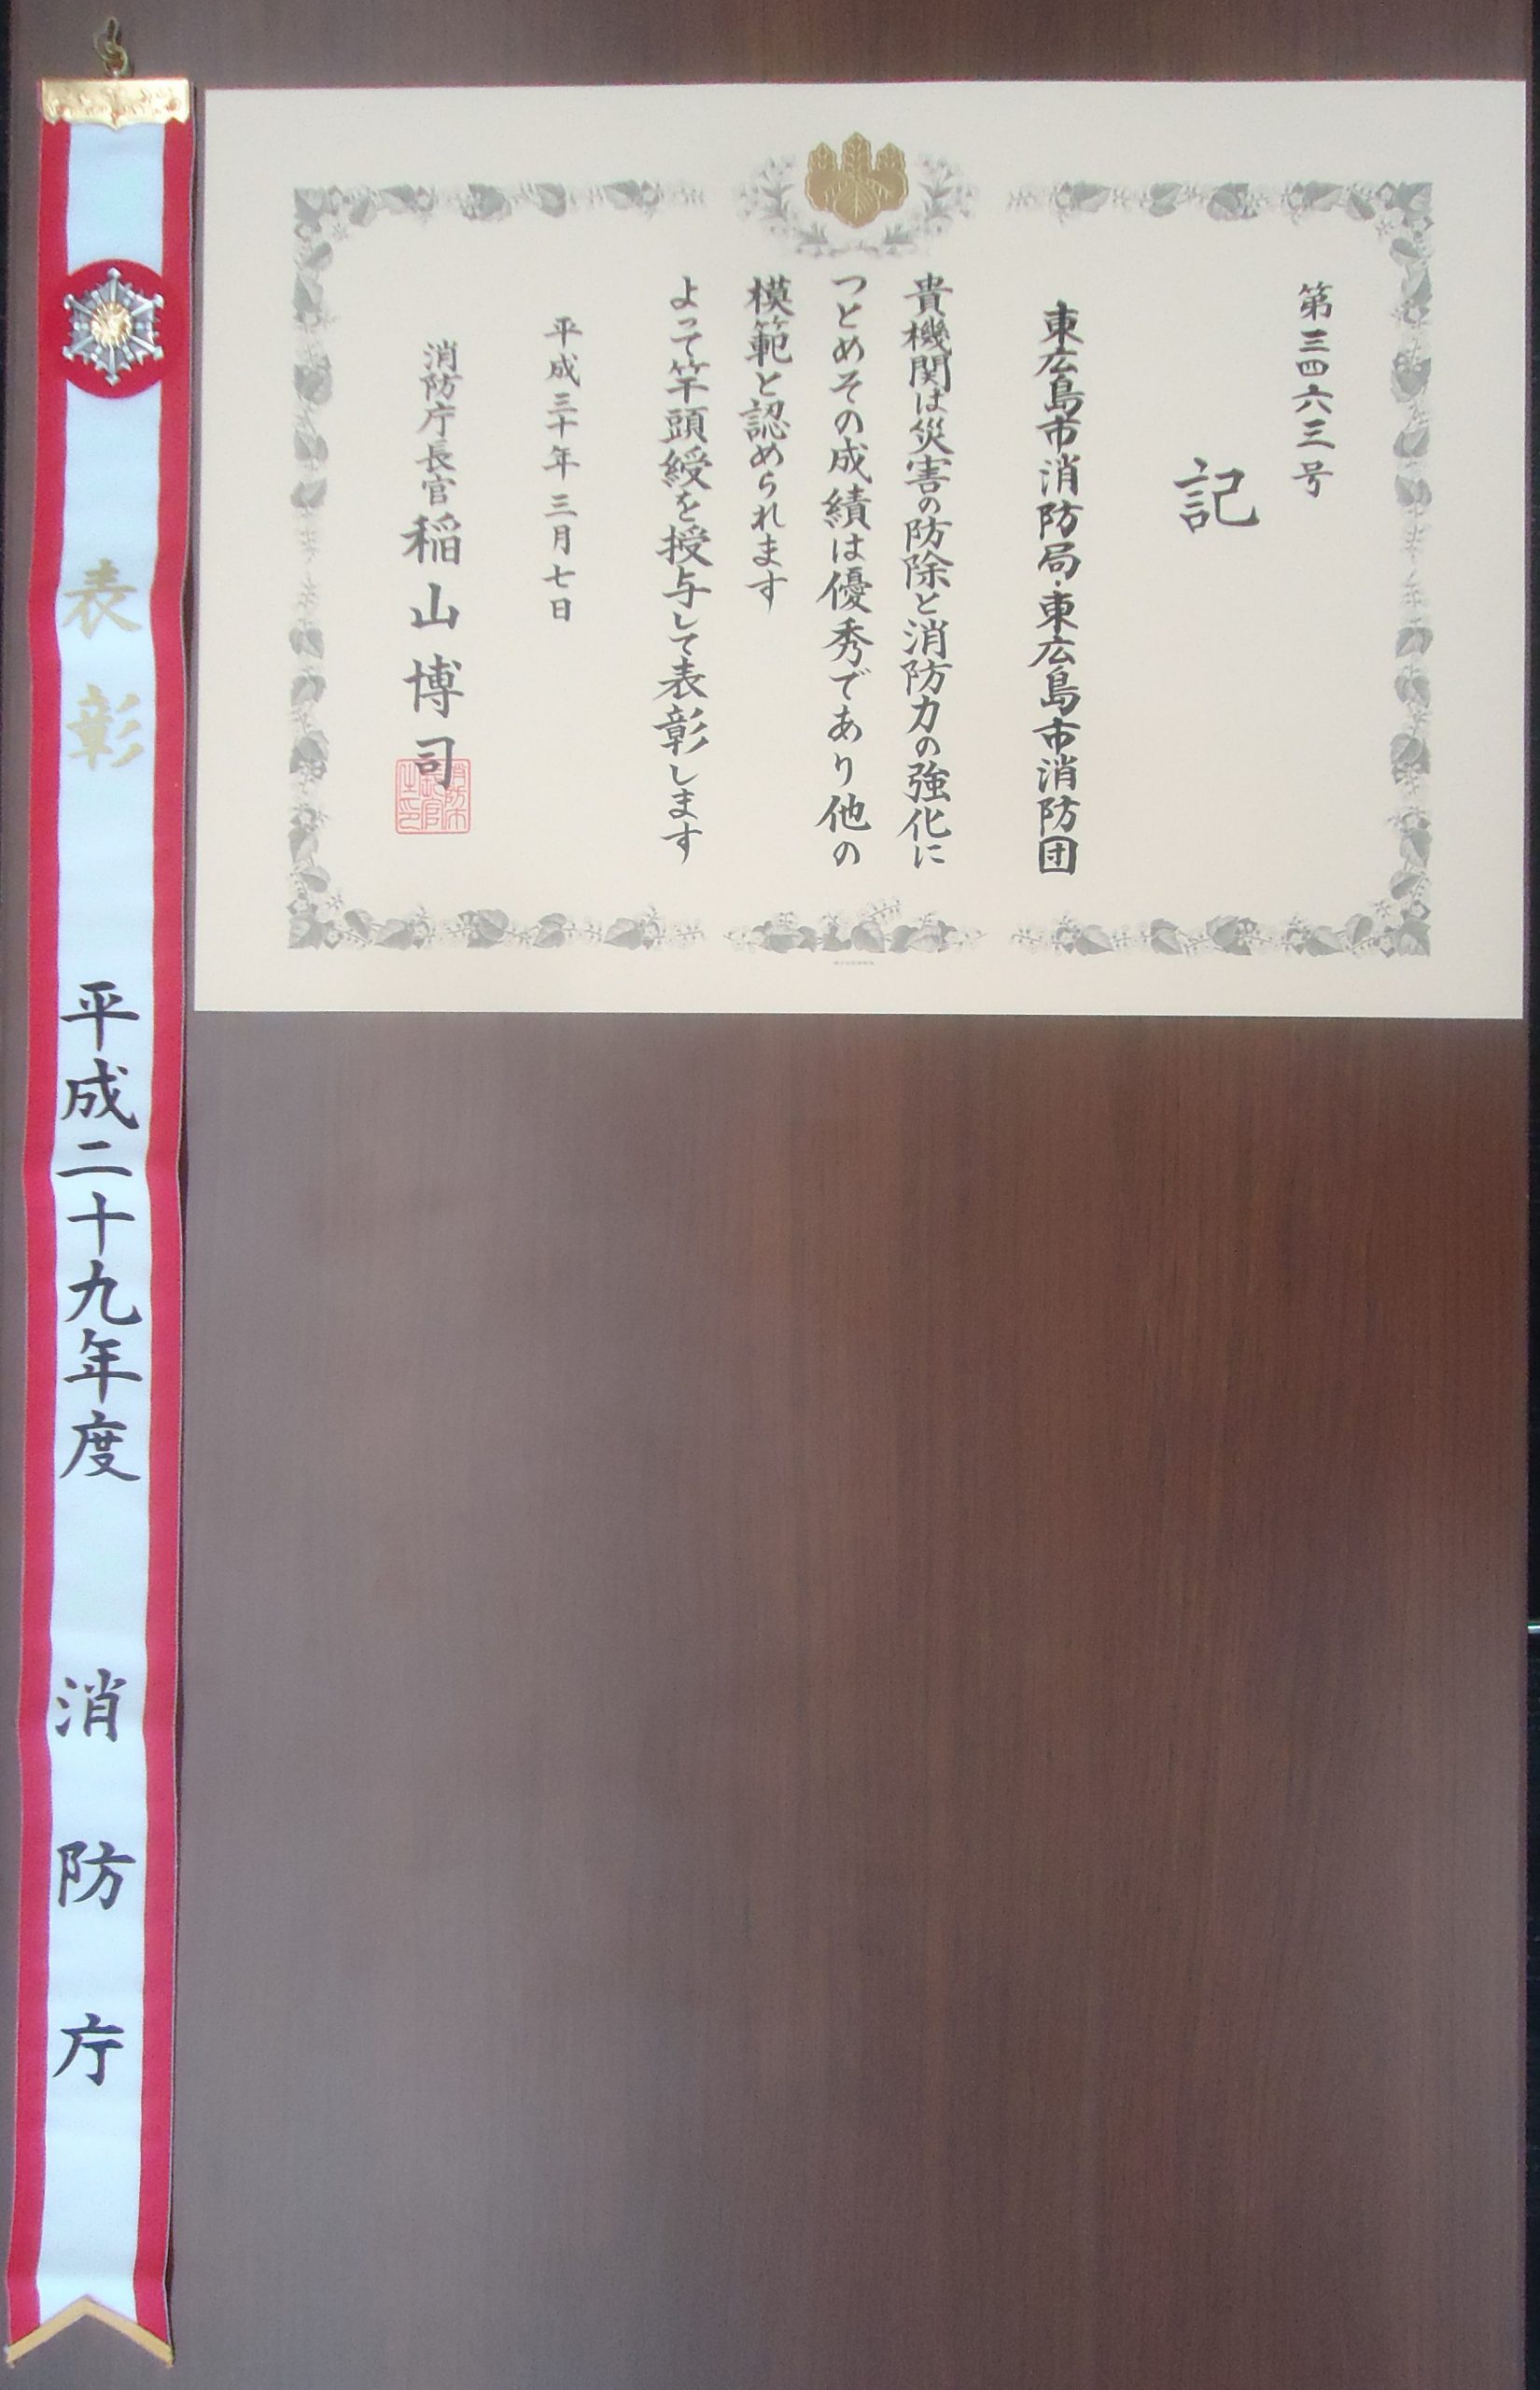 第三四六三号
記
東広島市消防局・東広島市消防団
貴機関は災害の防除と消防力の強化に
つとめその成績は優秀であり他の
模範と認められます
よって竿頭綬を授与して表彰します
平成三十年三月七日
消防庁長官 稲山博司
消防庁長官之印
表彰 平成二十九年度 消防庁